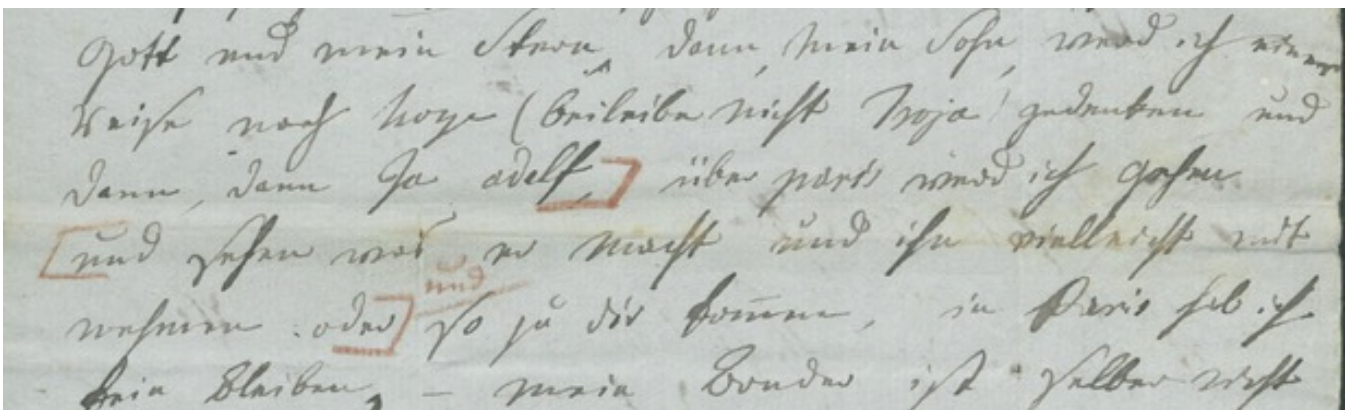 Gott und mein Stern, dann, mein Sohn, werd ich einer
Reise nach Hoya (beileibe nicht Troja) gedenken und
dann, dann Ja adolf, über paris werd ich gehen
und sehen was er macht und ihn vielleicht mit
und
nehmen oder so zu dir kommen, in Paris hab ich
kein Bleiben, – mein Bruder ist selber nicht